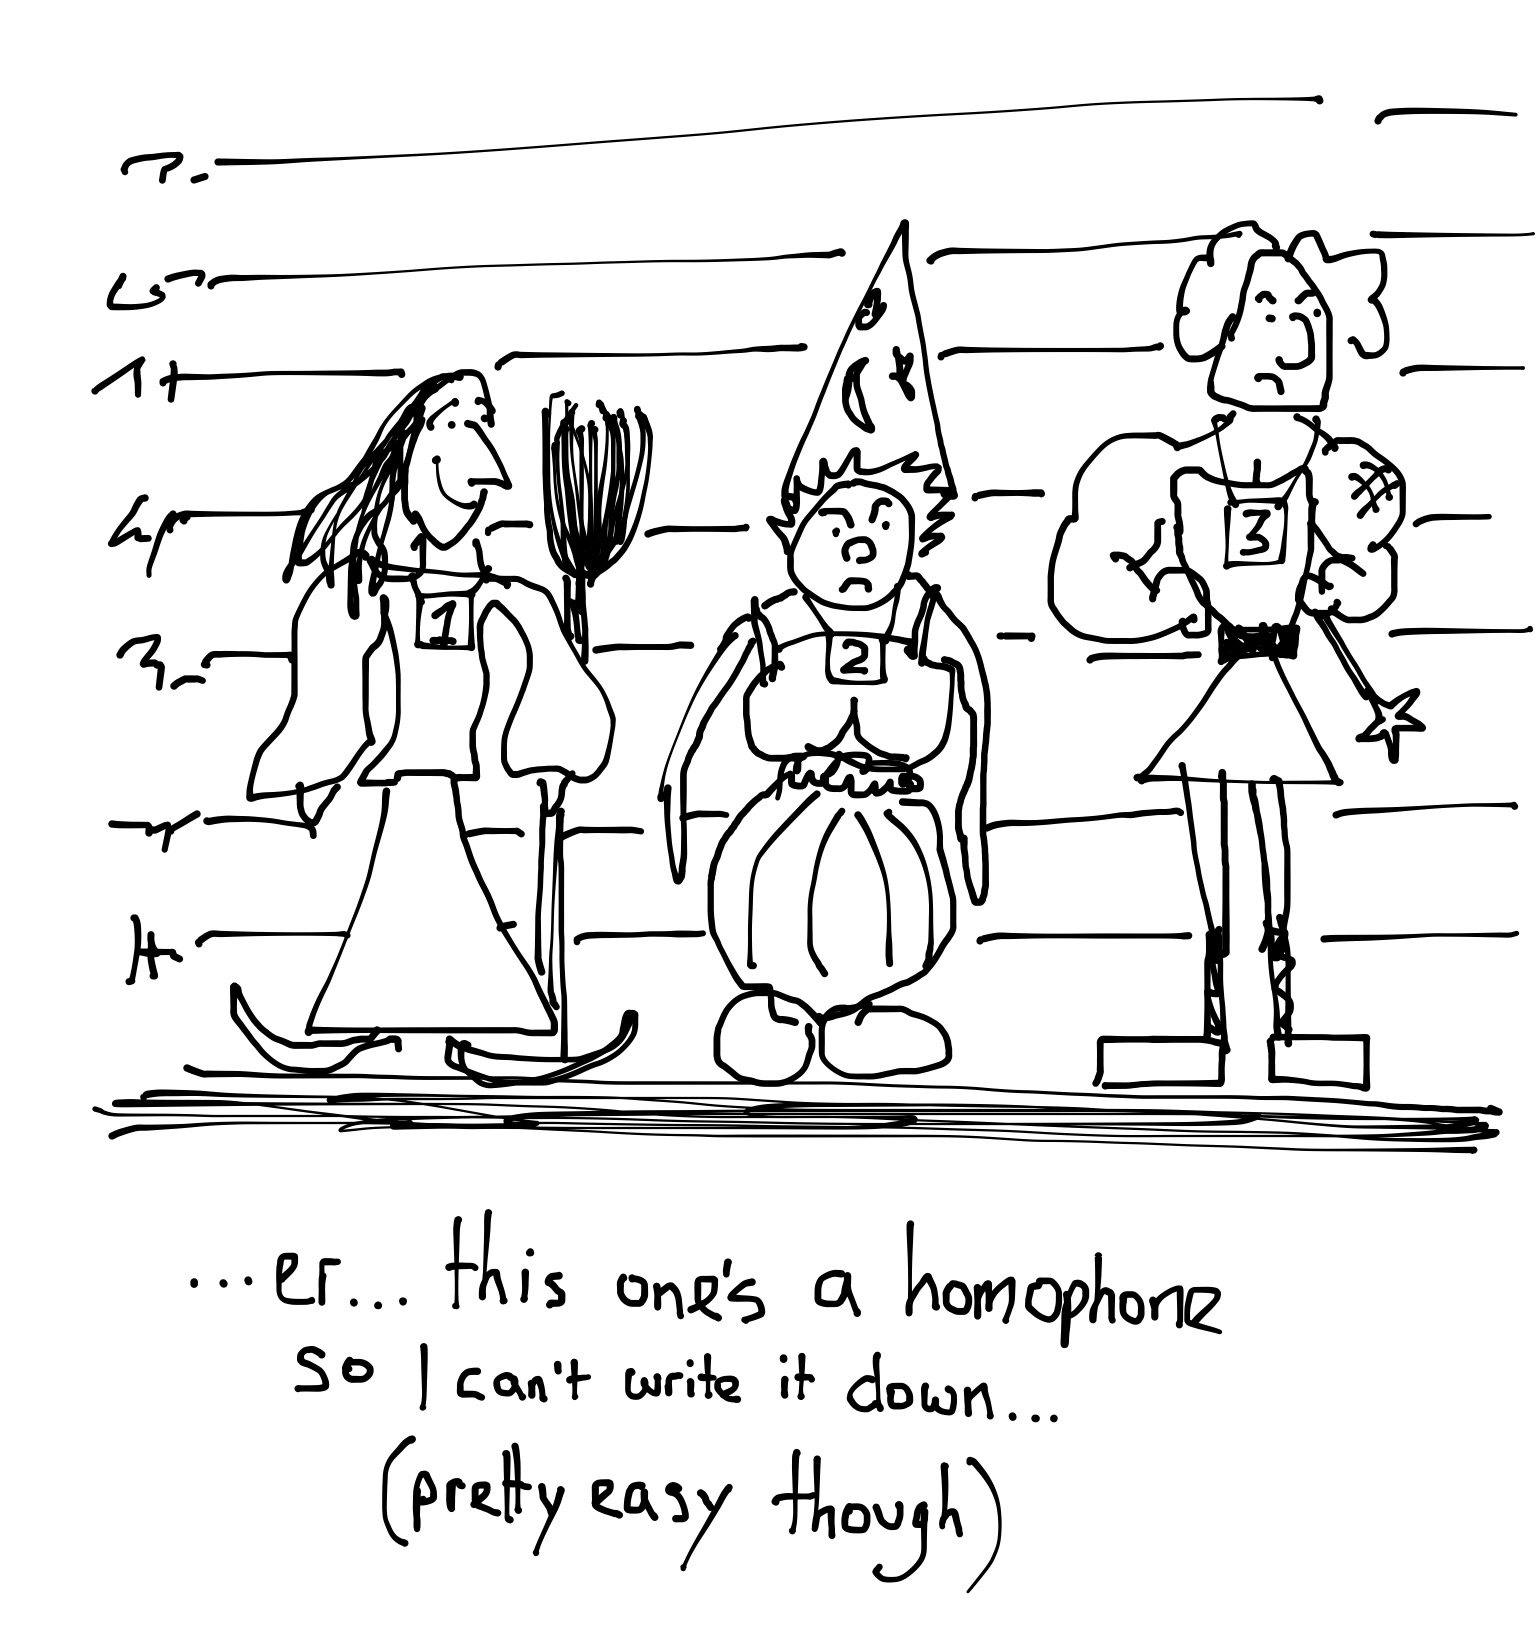 1
2
3
...er... this one's a homophone
so I can't write it down...
(pretty easy though)